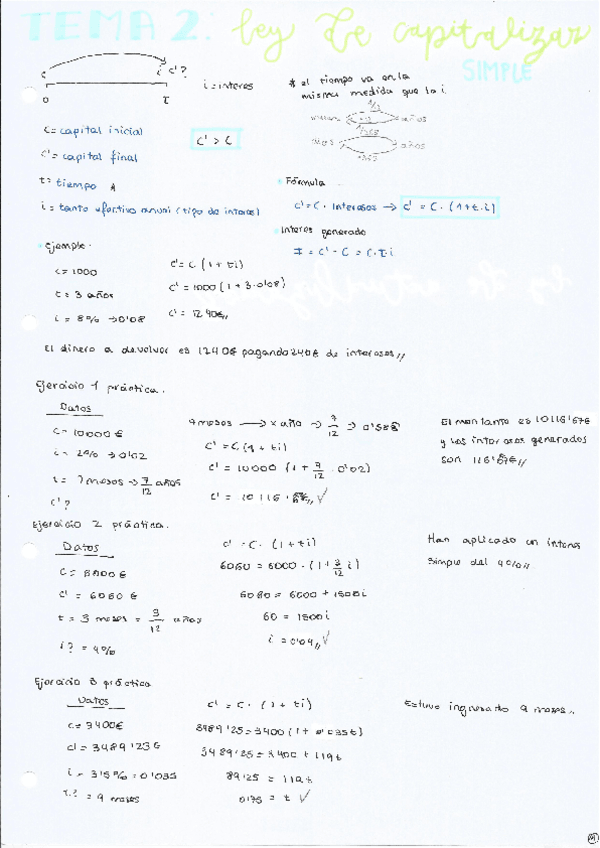 TEMA 2: ley de capitalizar
SIMPLE
C C'?
0 t
i = interes
* el tiempo va en la
misma medida que la i.
meses años
1/12
·12
días años
1/365
·365
C = capital inicial
C' > C
C' = capital final
t = tiempo *
i = tanto efectivo anual (tipo de interes)
Fórmula
C' = C · Intereses → C' = C · (1+t·i)
Interes generado
I = C' - C = C·t·i
Ejemplo.
C = 1000
C' = C (1 + ti)
t = 3 años
C' = 1000 (1 + 3·0'08)
i = 8% → 0'08
C' = 1240€,,
El dinero a devolver es 1240€ pagando 240€ de intereses,,
Ejercicio 1 práctica.
Datos
C = 10000€
i = 2% → 0'02
t = 7 meses → 7/12 años
C'?
7 meses → x año → 7/12 → 0'583
C' = C(1 + ti)
C' = 10000 (1 + 7/12 · 0'02)
C' = 10116'67€,, ✓
El montante es 10116'67€
y los intereses generados
son 116'67€,,
Ejercicio 2 práctica.
Datos
C = 6000€
C' = 6060€
t = 3 meses = 3/12 años
i? = 4%
C' = C · (1 + ti)
6060 = 6000 · (1 + 3/12 i)
6060 = 6000 + 1500i
60 = 1500i
i = 0'04,, ✓
Han aplicado un interes
simple del 4%,,
Ejercicio 3 práctica
Datos
C = 3400€
C' = 3489'25€
i = 3'5% = 0'035
t? = 9 meses
C' = C · (1 + ti)
3489'25 = 3400 (1 + 0'035t)
3489'25 = 3400 + 119t
89'25 = 119t
0'75 = t ✓
Estuvo ingresado 9 meses,,